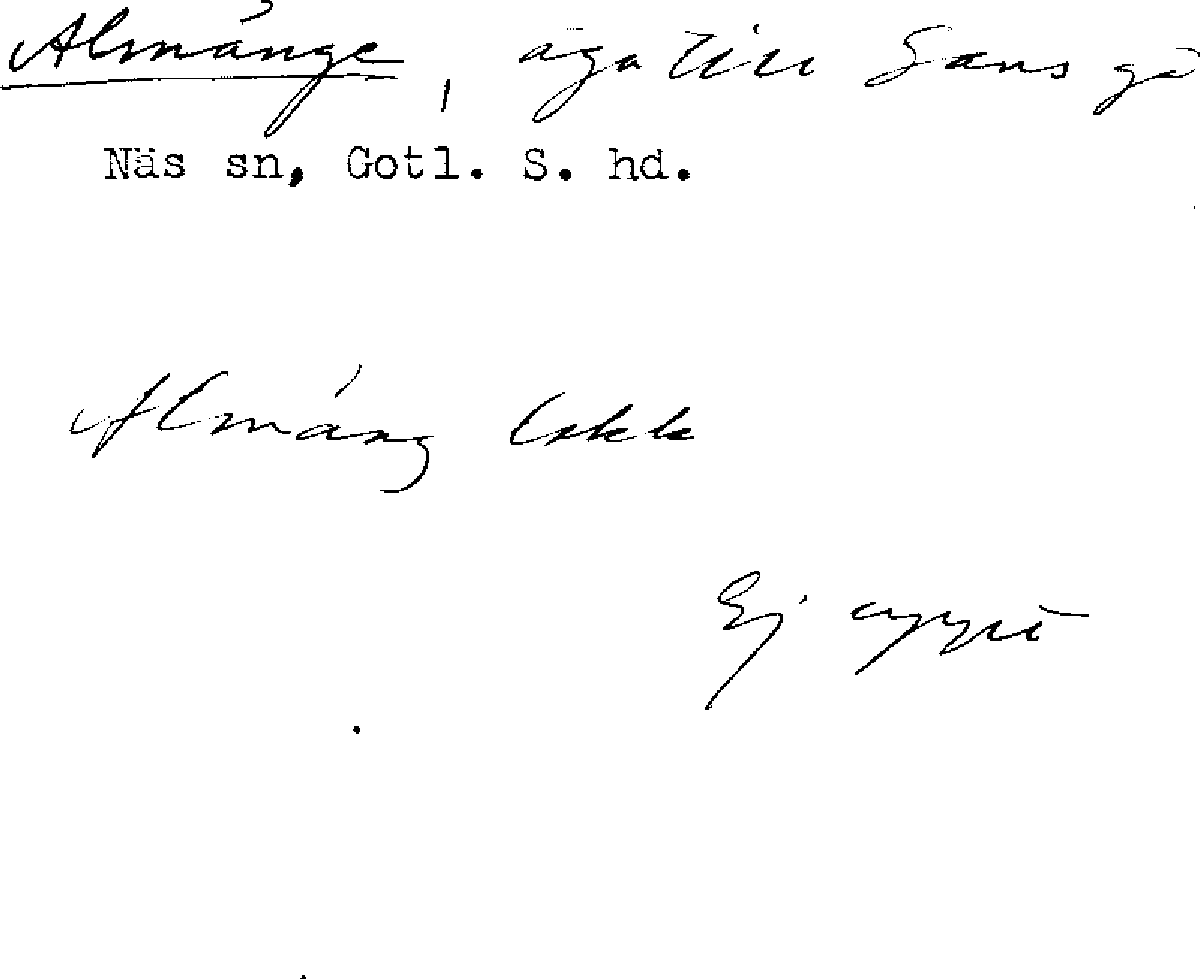 Almánge, äga till Sans gå
Näs sn, Gotl. S. hd.
Almáng
Ej uppt